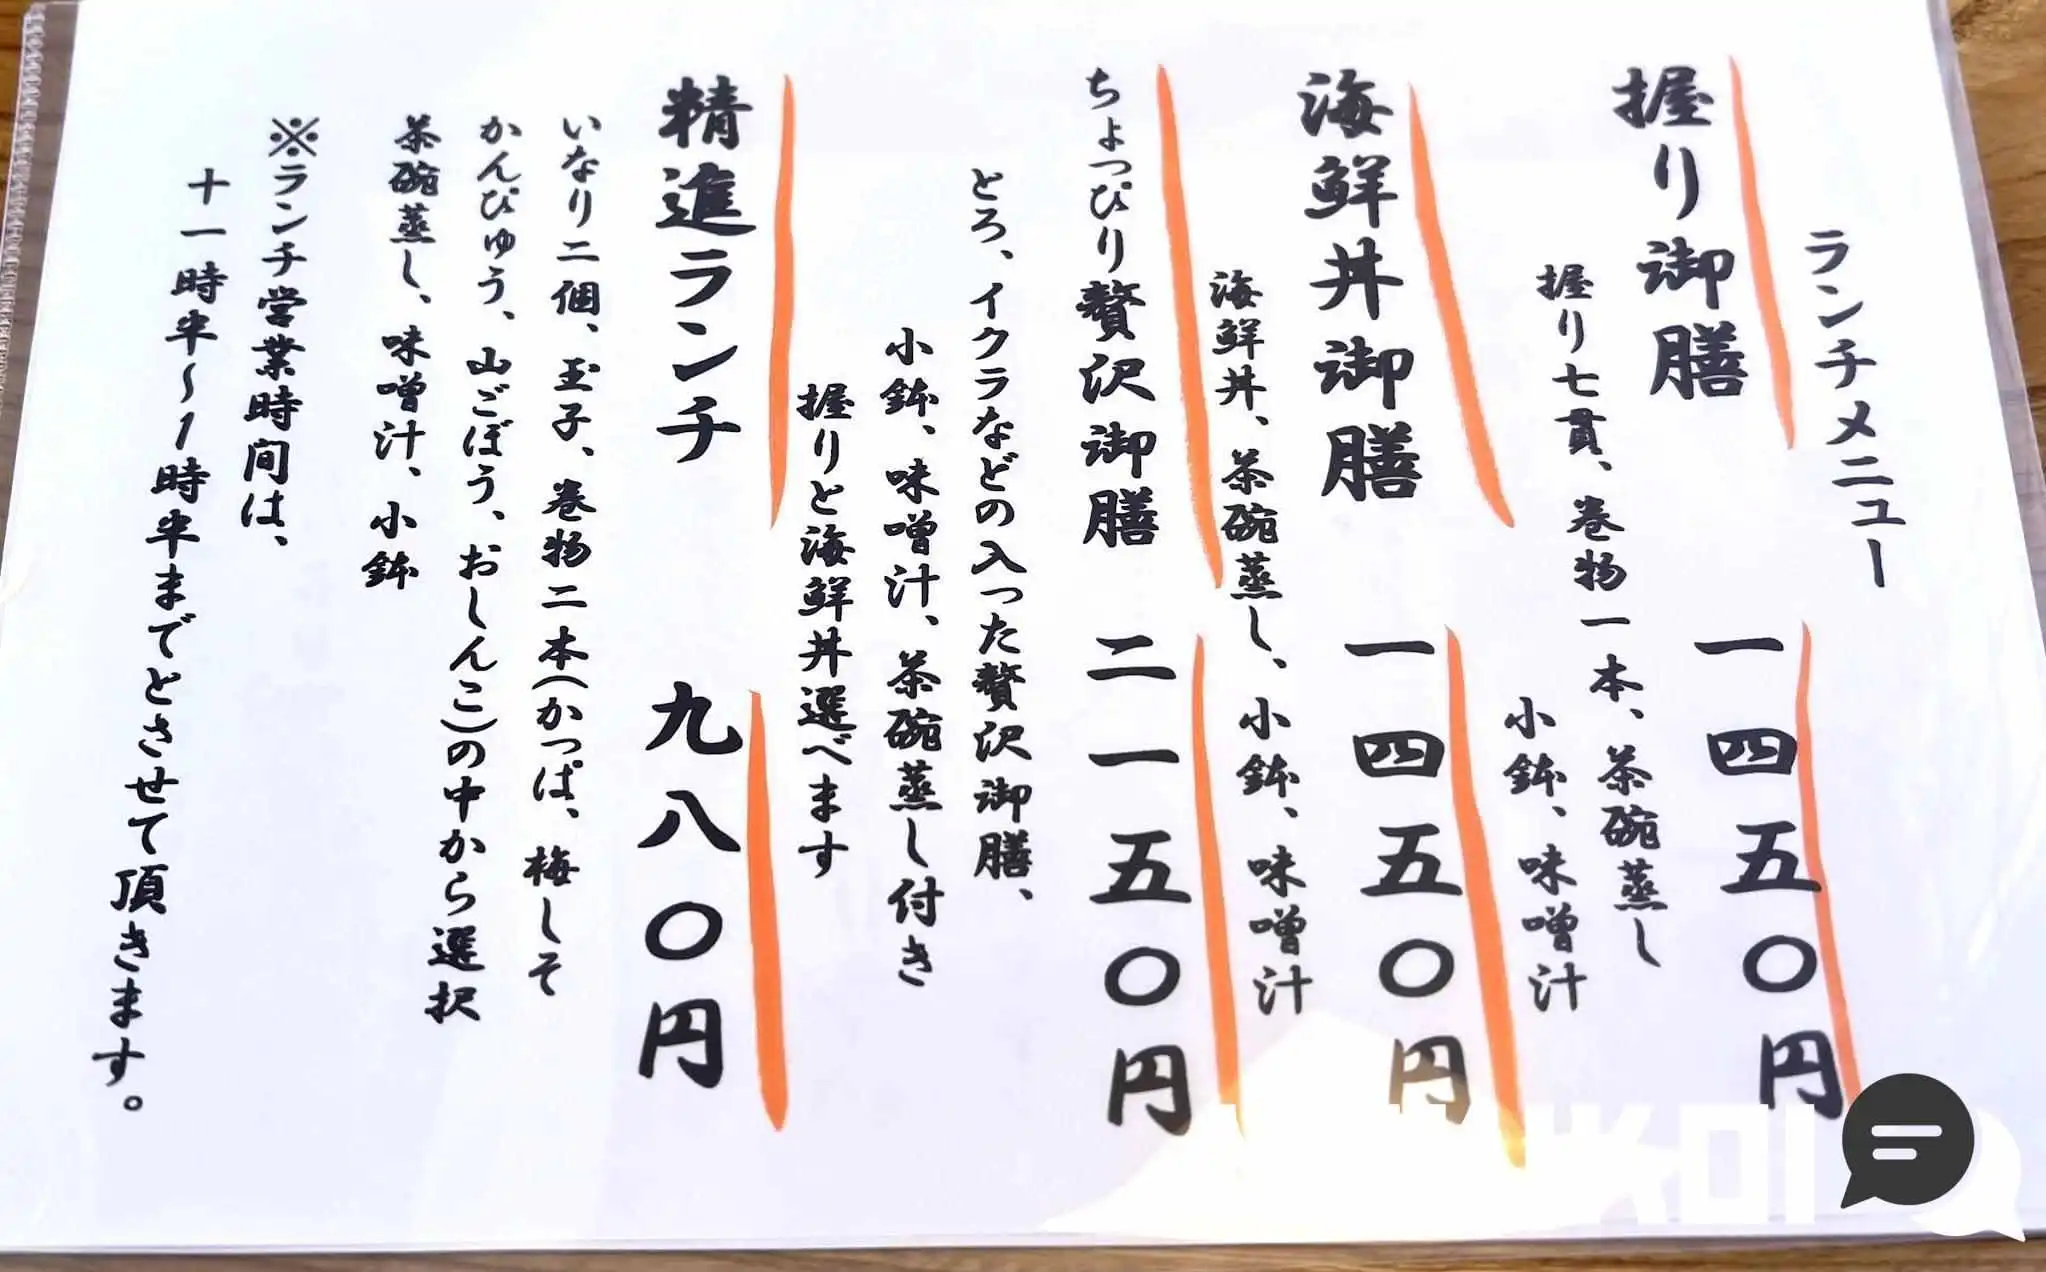 ランチメニュー
握り御膳 一四五〇円
握り七貫、巻物一本、茶碗蒸し
小鉢、味噌汁
海鮮丼御膳 一四五〇円
海鮮丼、茶碗蒸し、小鉢、味噌汁
ちょっぴり贅沢御膳 二一五〇円
とろ、イクラなどの入った贅沢御膳、
小鉢、味噌汁、茶碗蒸し付き
握りと海鮮丼選べます
精進ランチ 九八〇円
いなり二個、玉子、巻物二本(かっぱ、梅しそ
かんぴゅう、山ごぼう、おしんこ)の中から選択
茶碗蒸し、味噌汁、小鉢
※ランチ営業時間は、
十一時半~1時半までとさせて頂きます。